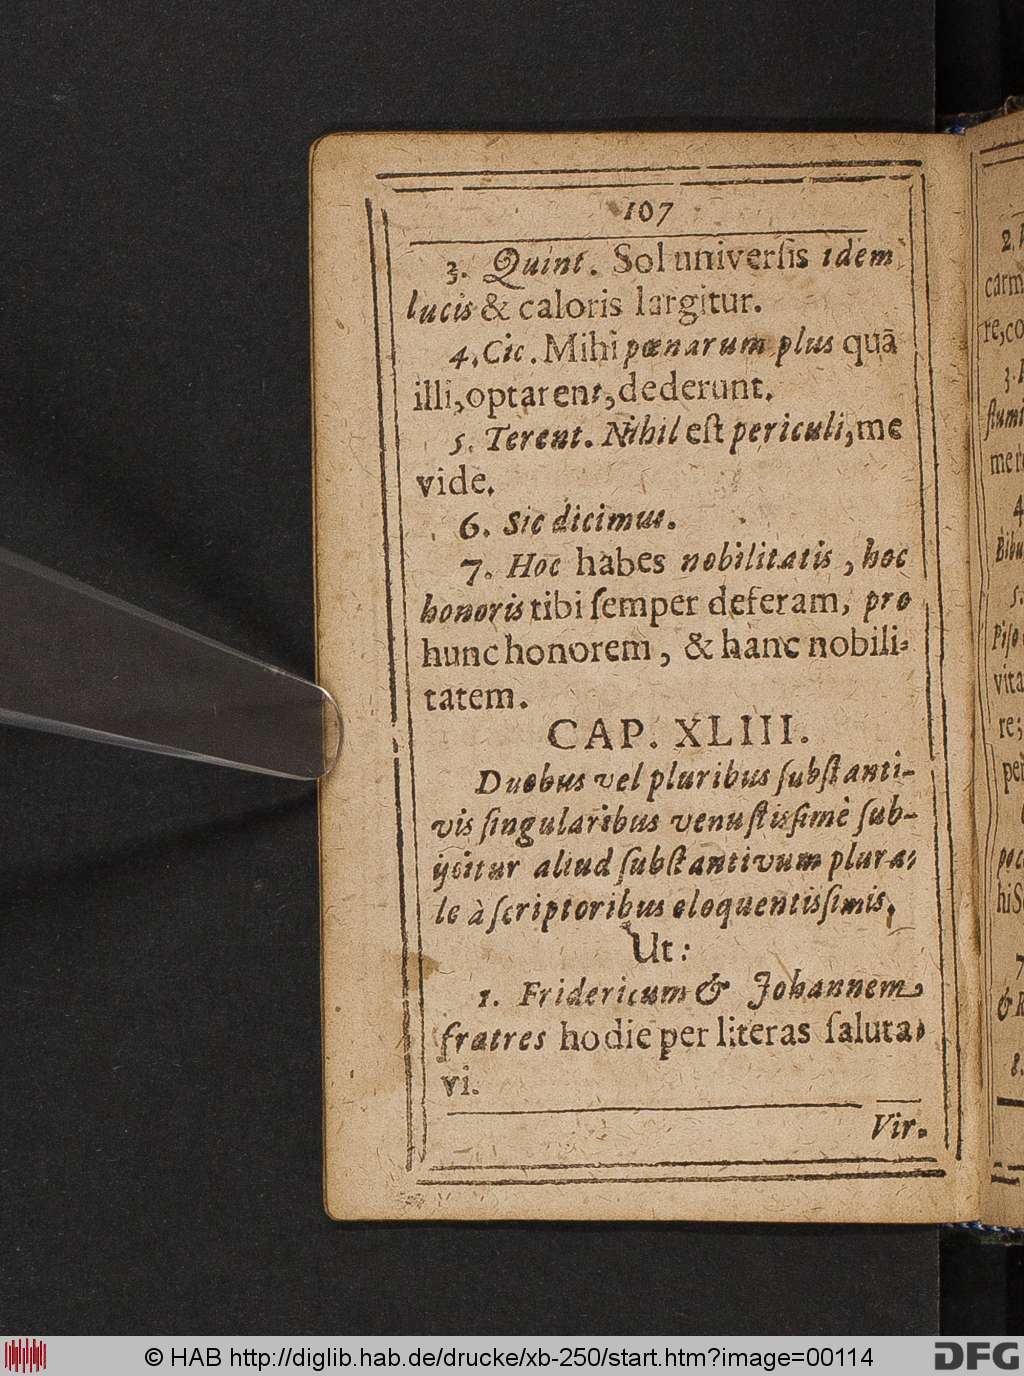 107
3. Quint. Sol universis idem
lucis & caloris largitur.
4. Cic. Mihi pœnarum plus quā
illi, optarent, dederunt.
5. Terent. Nihil est periculi, me
vide.
6. Sic dicimus.
7. Hoc habes nobilitatis, hoc
honoris tibi semper deferam, pro
hunc honorem, & hanc nobili-
tatem.
CAP. XLIII.
Duobus vel pluribus substanti-
vis singularibus venustissimè sub-
ijcitur aliud substantivum plura-
le à scriptoribus eloquentissimis,
Ut:
1. Fridericum & Johannem
fratres hodie per literas saluta-
vi.
Vir-
2.
carm
re, co
3.
stumi
me re
4
Bibu
5.
Piso
vita
re;
per
poc
hi S
7
&
8.
© HAB http://diglib.hab.de/drucke/xb-250/start.htm?image=00114
DFG